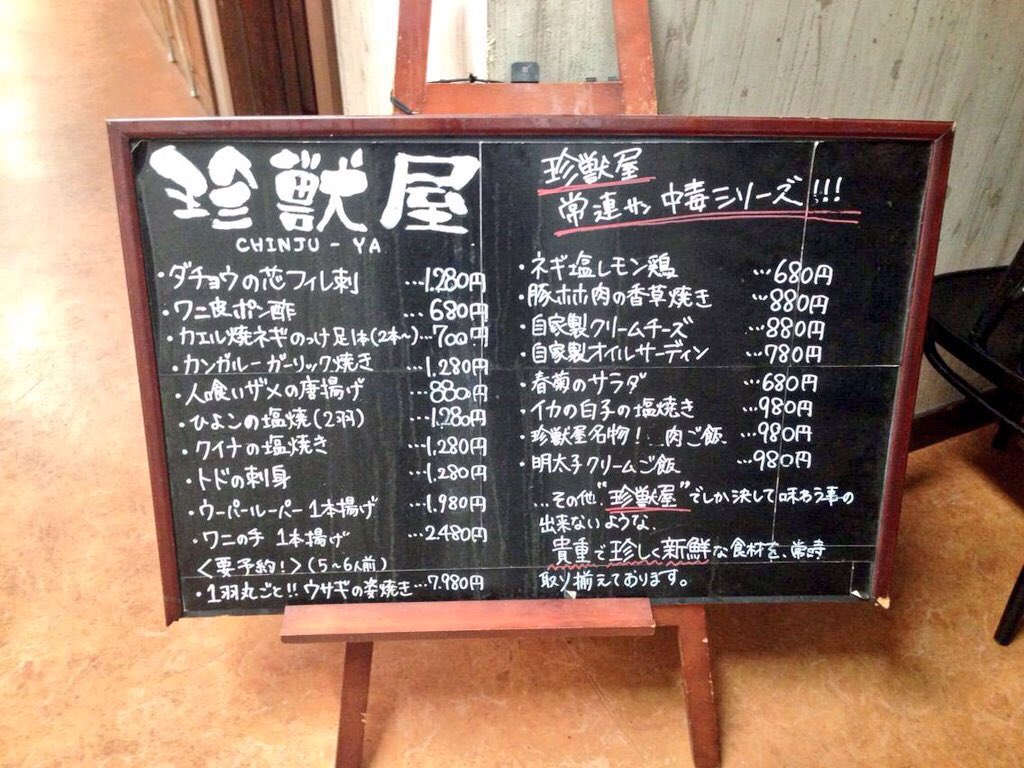 珍獣屋
CHINJU-YA
・ダチョウの芯フィレ刺 …1,280円
・ワニ皮ポン酢 …680円
・カエル焼ネギのっけ足1体(2本〜)…700円
・カンガルーガーリック焼き …1,280円
・人喰いザメの唐揚げ …880円
・ひよこの塩焼(2羽) …1,280円
・クイナの塩焼き …1,280円
・トドの刺身 …1,280円
・ウーパールーパー 1本揚げ …1,980円
・ワニの手 1本揚げ …2,480円
<要予約!>(5〜6人前)
・1羽丸ごと!!ウサギの姿焼き…7,980円
珍獣屋
常連サン中毒シリーズ!!!
・ネギ塩レモン鶏 …680円
・豚ホホ肉の香草焼き …880円
・自家製クリームチーズ …880円
・自家製オイルサーディン …780円
・春菊のサラダ …680円
・イカの白子の塩焼き …980円
・珍獣屋名物!…肉ご飯 …980円
・明太子クリームご飯 …980円
…その他"珍獣屋"でしか決して味わう事の
出来ないような、
貴重で珍しく新鮮な食材を、常時
取り揃えております。